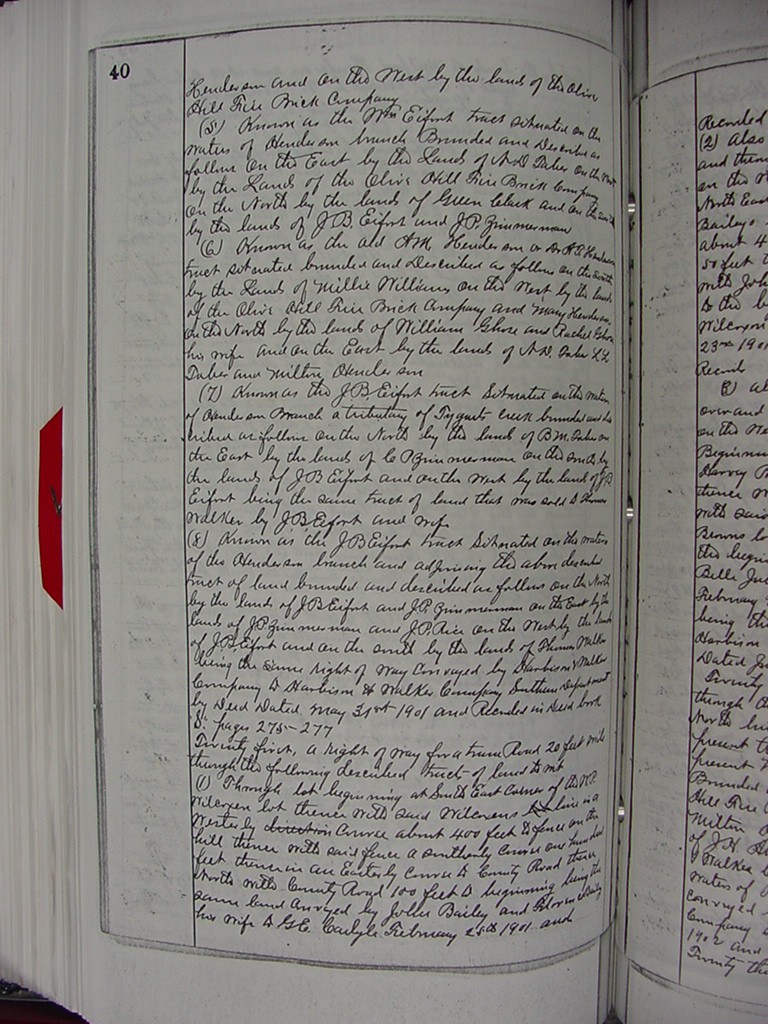 40
Henderson and on the West by the lands of the Olive
Hill Fire Brick Company
(5) Known as the Wm Eifort tract situated on the
waters of Henderson branch Bounded and Described as
follows On the East by the Lands of A.D. Taber on the West
by the Lands of the Olive Hill Fire Brick Company
On the North by the lands of Green Clark and on the South
by the lands of J.B. Eifort and J.P. Zimmerman
(6) Known as the old Henderson or
tract situated bounded and Described as follows on the South
by the Lands of Millie Williams on the West by the lands
of the Olive Hill Fire Brick Company and Mary Henderson
on the North by the lands of William Ghose and Rachel Ghose
his wife and on the East by the lands of A.D. Taber
Taber and Milton Henderson
(7) Known as the J.B. Eifort tract Situated on the waters
of Henderson Branch a tributary of Tygarts creek bounded and des
cribed as follows on the North by the lands of B.M. Taber on
the East by the lands of C P Zimmerman on the South by
the lands of J B Eifort and on the West by the lands of J.B
Eifort being the same tract of land that was sold to Thomas
Walker by J B Eifort and wife
(8) Known as the J B Eifort tract Situated on the waters
of the Henderson branch and adjoining the above described
tract of land bounded and described as follows on the North
by the lands of J B Eifort and J.P. Zimmerman on the East by the
lands of J P Zimmerman and J.P. Rice on the West by the lands
of J.B. Eifort and on the South by the lands of Thomas Walker
being the same right of way conveyed by Harbison & Walker
Company to Harbison & Walker Company Southern Department
by Deed Dated May 31st 1901 and Recorded in Deed book
pages 275-277
Twenty first, a right of way for a tram Road 20 feet wide
through the following described tracts of land to wit
(1) Through lot beginning at South East Corner of the W.P.
Wilcoxen lot thence with said Wilcoxens line in a
Westerly direction Course about 400 feet to fence on the
hill thence with said fence a southerly course one hundred
feet thence in an Easterly Course to County Road thence
North with County Road 100 feet to beginning being the
same land conveyed by John Bailey and Bailey
his wife to G.E. Carlyle February 25th 1901 and
Recorded
(2) Also
on the
North East
Bailey
about 4
50 feet
with John
to the
Wilcoxen
23rd 1901
Record
over and
on the
Beginning
Harvey
thence
with said
the
Belle
February
being the
Harbison
Dated
Twenty
through
North
present
present
Bounded
Hill Fire
Milton
of J.H.
Walker
waters of
conveyed
Company
1902 and
Twenty